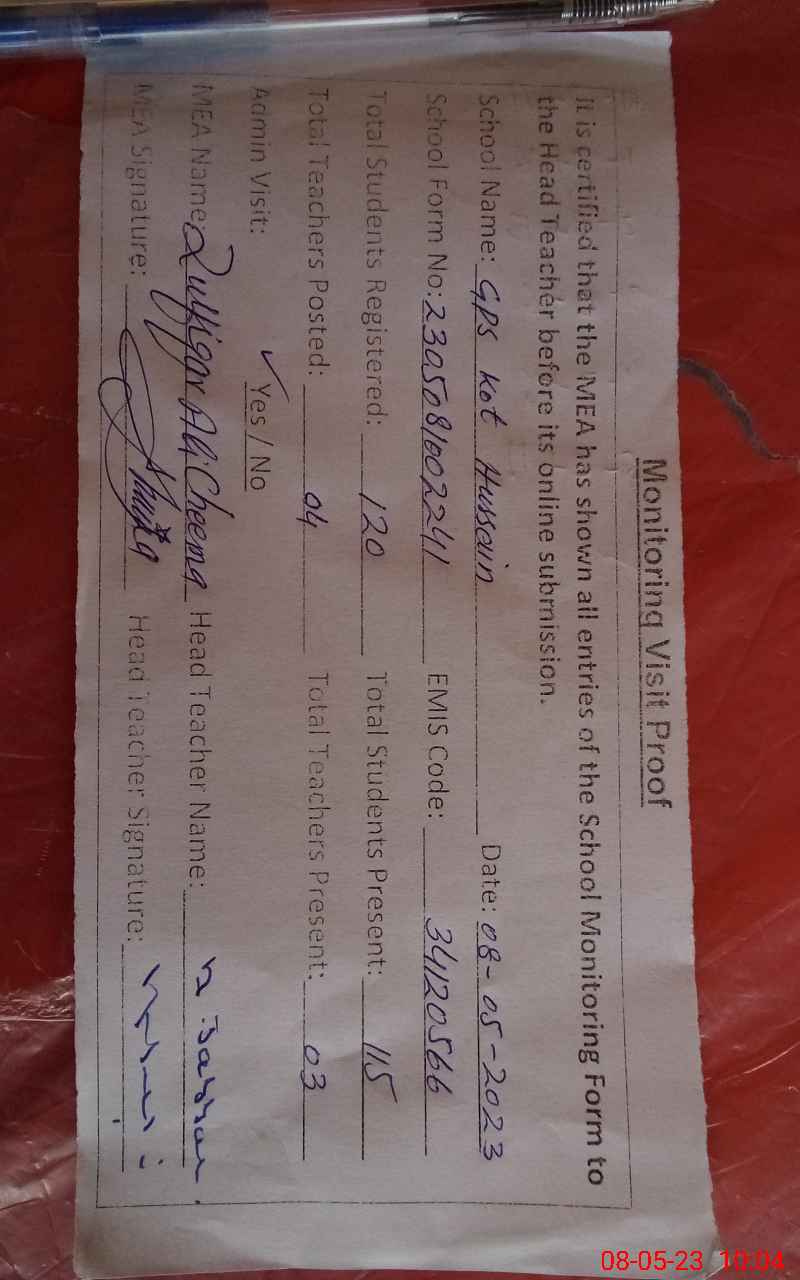 Monitoring Visit Proof
It is certified that the MEA has shown all entries of the School Monitoring Form to
the Head Teacher before its online submission.
School Name: GPS Kot Hussain Date: 08-05-2023
School Form No: 2305081002241 EMIS Code: 34120566
Total Students Registered: 120 Total Students Present: 115
Total Teachers Posted: 04 Total Teachers Present: 03
Admin Visit: ✓ Yes / No
MEA Name: Zulfiqar Ali Cheema Head Teacher Name:
MEA Signature: Head Teacher Signature:
08-05-23 10:04